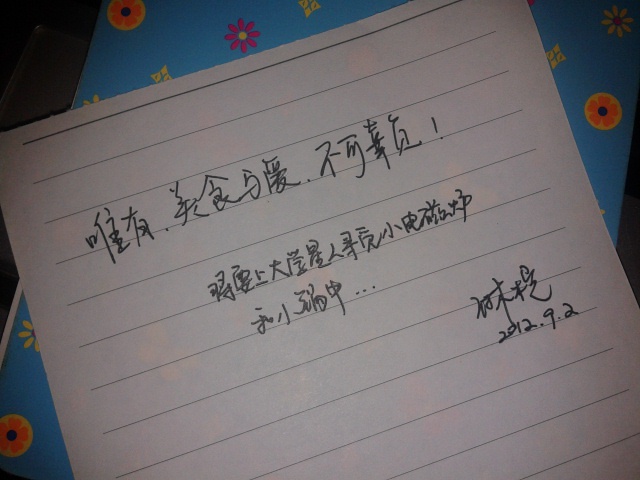 唯有美食与爱.不可辜负!
将要上大学星人寻觅小电磁炉
和小锅中...
林悦
2012.9.2